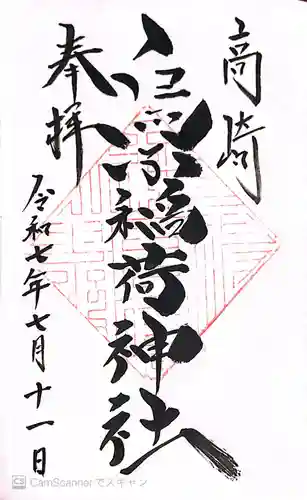 高崎
稲荷神社
奉拝
令和七年七月十一日
CS CamScanner でスキャン